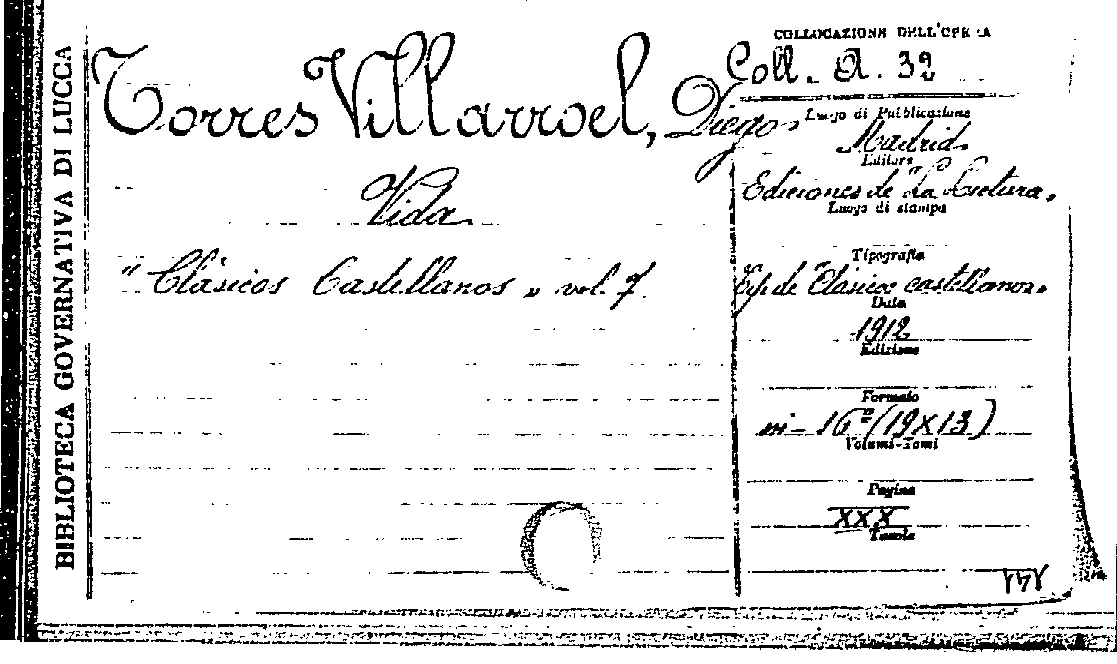 BIBLIOTECA GOVERNATIVA DI LUCCA
Torres Villarroel, Diego
Vida
"Clásicos Castellanos" vol. 7
COLLOCAZIONE DELL'OPERA
Coll. A. 32
Luogo di Pubblicazione
Madrid.
Editore
Ediciones de "La Lectura".
Luogo di stampa
Tipografia
Tip. de "Clásicos castellanos".
Data
1912
Edizione
Formato
in-16º (19X13)
Volumi-Tomi
Pagine
XXX
Tavole